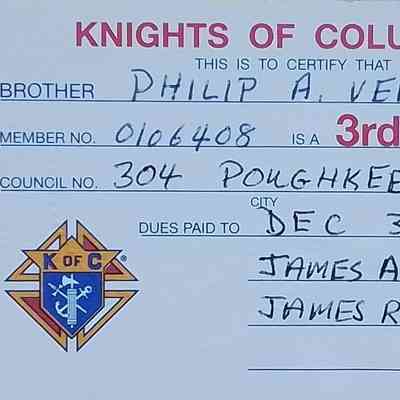 KNIGHTS OF COLU
THIS IS TO CERTIFY THAT
BROTHER PHILIP A. VE
MEMBER NO. 0106408 IS A 3rd
COUNCIL NO. 304 POUGHKEE
CITY
DUES PAID TO DEC 3
JAMES A
JAMES R
K OF C ®